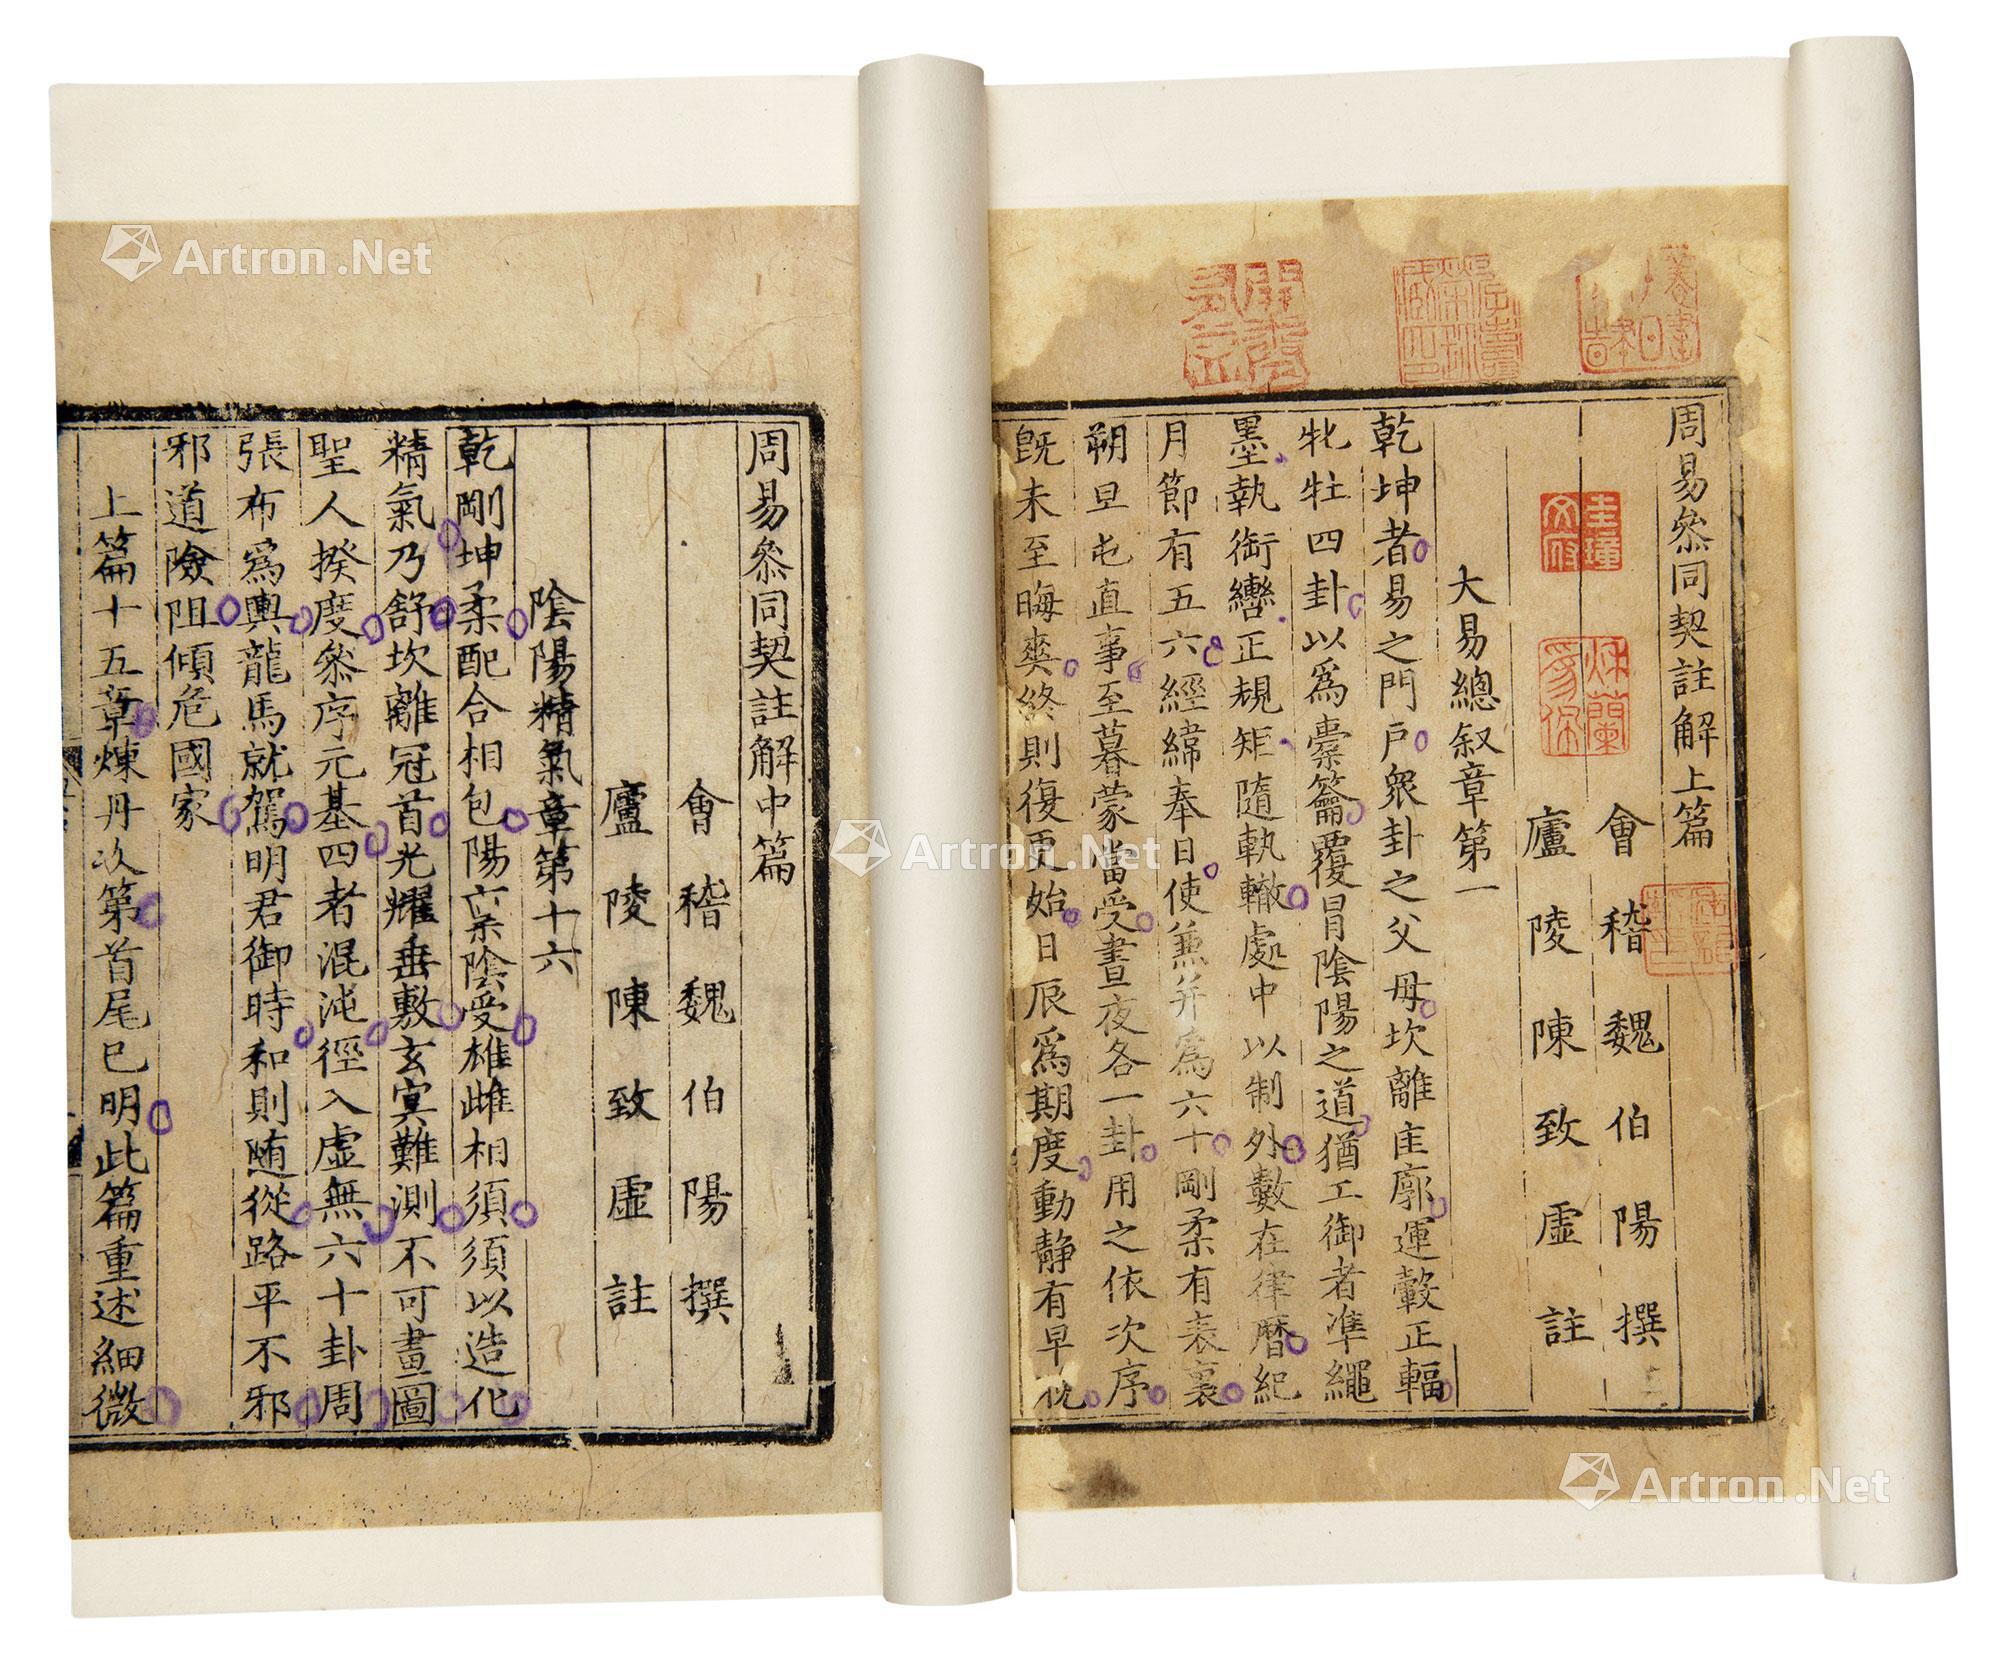 周易叅同契註解上篇
會稽魏伯陽撰
廬陵陳致虛註
大易總叙章第一
乾坤者易之門戶衆卦之父母坎離匡廓運轂正輻
牝牡四卦以爲橐籥覆冒陰陽之道猶工御者準繩
墨執銜轡正規矩隨軌轍處中以制外數在律曆紀
月節有五六經緯奉日使兼并爲六十剛柔有表裏
朔旦屯直事至暮蒙當受晝夜各一卦用之依次序
旣未至晦爽終則復更始日辰爲期度動靜有早
周易叅同契註解中篇
會稽魏伯陽撰
廬陵陳致虛註
陰陽精氣章第十六
乾剛坤柔配合相包陽稟陰受雄雌相須須以造化
精氣乃舒坎離冠首光耀垂敷玄冥難測不可畫圖
聖人揆度叅序元基四者混沌徑入虛無六十卦周
張布爲輿龍馬就駕明君御時和則随從路平不邪
邪道險阻傾危國家
上篇十五章煉丹次第首尾已明此篇重述細微
Artron.Net
Artron.Net
Artron.Net